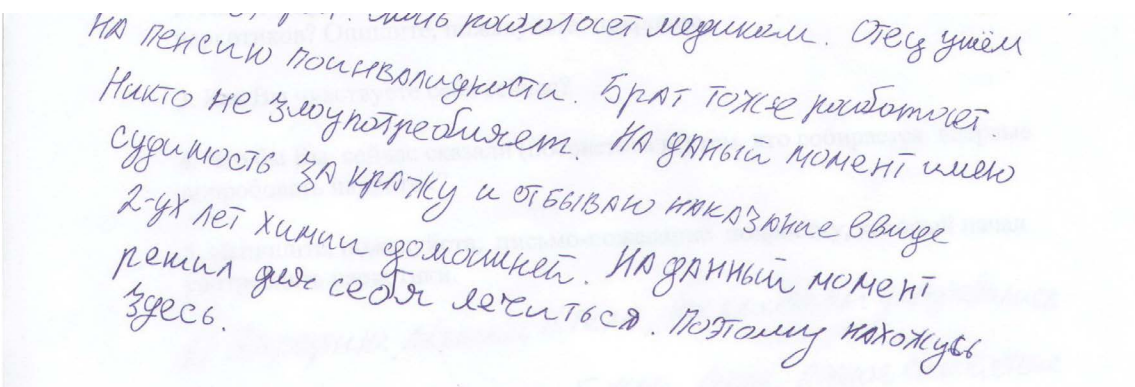 работает медиком. Отец ушёл
на пенсию поинвалидности. Брат тоже работает
Никто не злоупотребляет. На даный момент имею
судимость за кражу и отбываю наказание ввиде
2-ух лет химии домашней. На данный момент
решил для себя лечиться. Поэтому нахожусь
здесь.